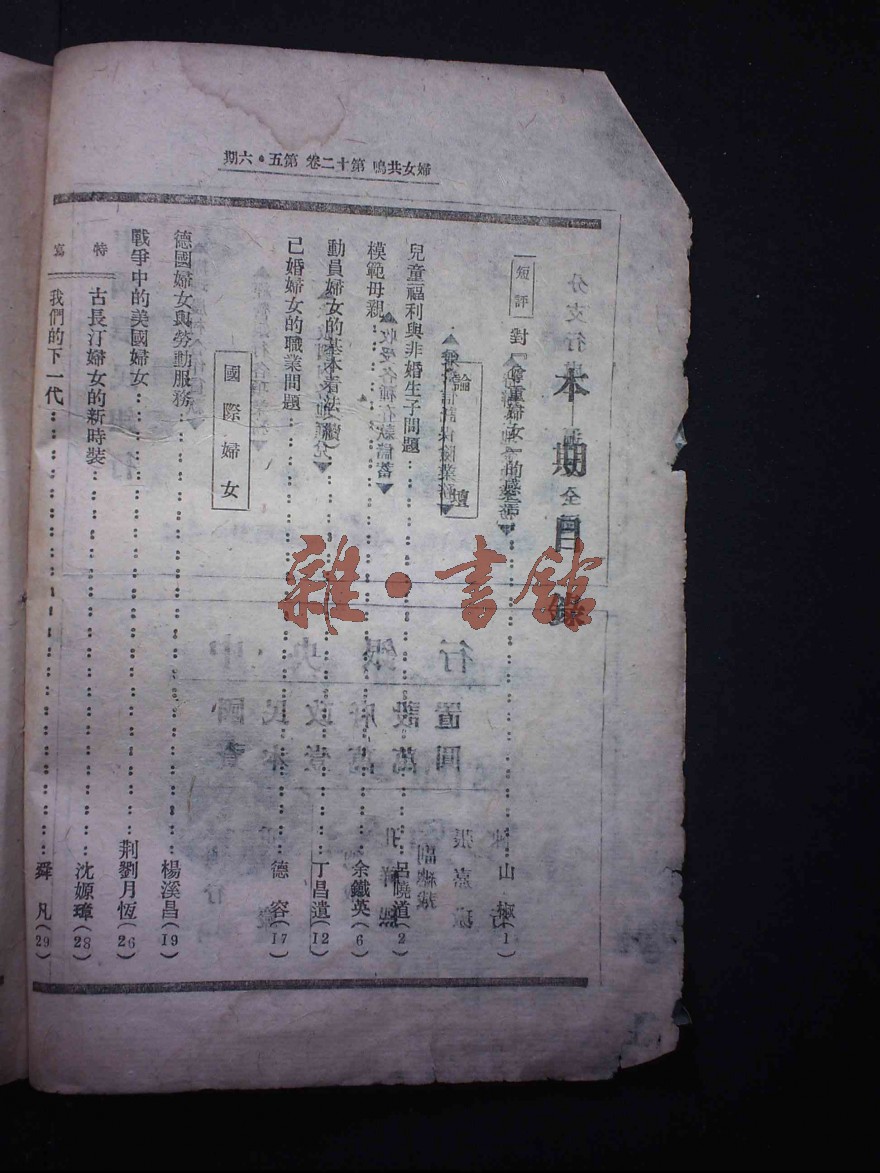 婦女共鳴 第十二卷 第五・六期
本期目錄
短評
對「尊重婦女」的感言…………山極(1)
論壇
兒童福利與非婚生子問題…………呂曉道(2)
模範母親…………余鐵英(6)
動員婦女的基本看法(續)…………丁昌遺(12)
已婚婦女的職業問題…………德容(17)
國際婦女
德國婦女與勞動服務…………楊溪昌(19)
戰爭中的美國婦女…………荆劉月恆(26)
特寫
古長汀婦女的新時裝…………沈嫄璋(28)
我們的下一代…………舜凡(29)
雜·書館